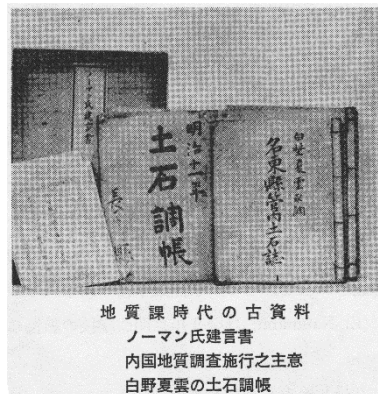 ノーマン氏建言書
明治十一年
土石調帳
長
白野夏雲取調
名東縣管内土石誌
地質課時代の古資料
ノーマン氏建言書
内国地質調査施行之主意
白野夏雲の土石調帳